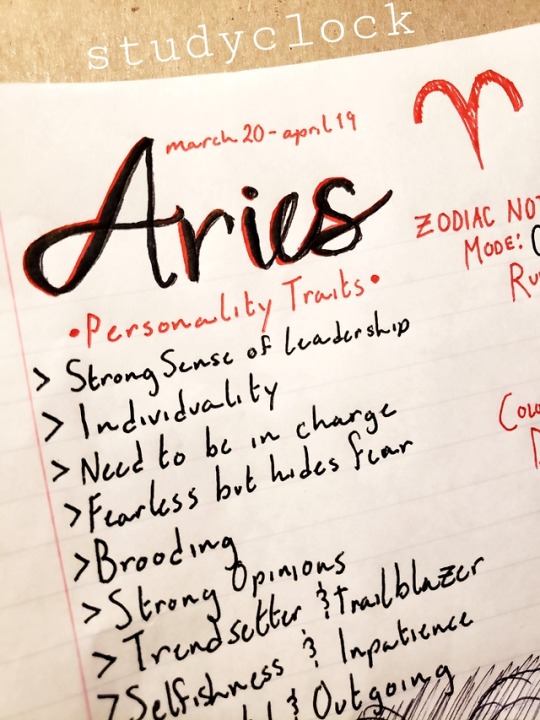 studyclock
march 20 - april 19
Aries
ZODIAC NOT
MODE:
Ru
•Personality Traits•
> Strong Sense of leadership
> Individuality
> Need to be in charge
> Fearless but hides fear
> Brooding
> Strong Opinions
> Trendsetter & trailblazer
> Selfishness & Inpatience
& Outgoing
Colo